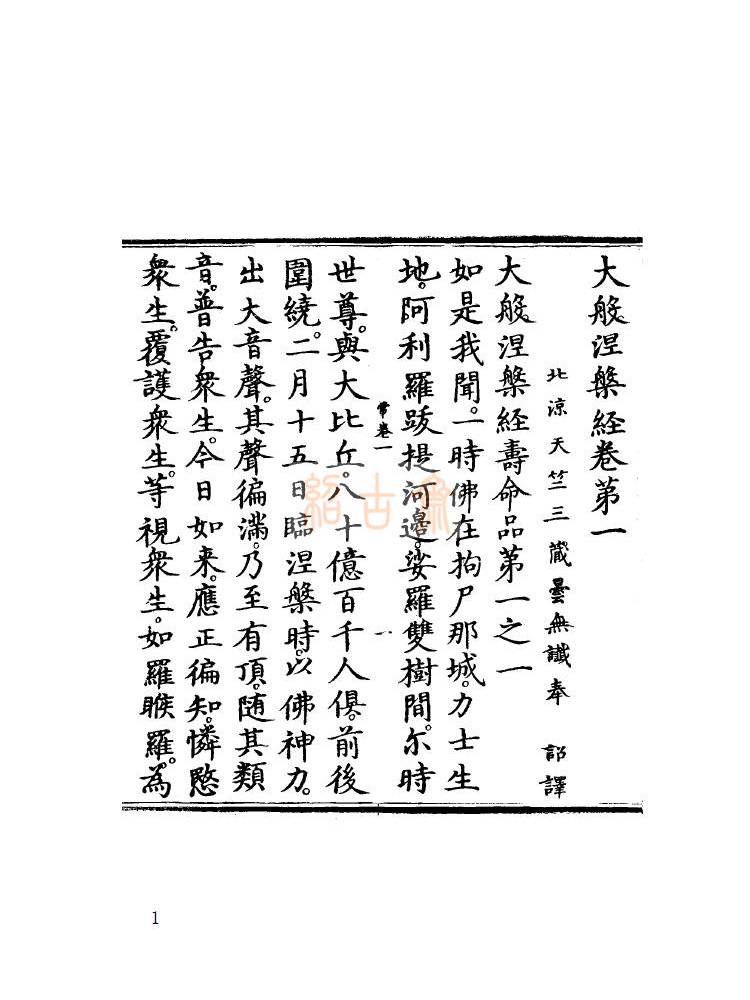 大般涅槃経卷第一
北涼天竺三藏曇無讖奉 詔譯
大般涅槃経壽命品第一之一
如是我聞。一時佛在拘尸那城。力士生
地。阿利羅跋提河邊。娑羅雙樹間。尓時
常卷一
一
世尊。與大比丘。八十億百千人俱。前後
圍繞。二月十五日臨涅槃時。以佛神力。
出大音聲。其聲徧滿。乃至有頂。隨其類
音。普告衆生。今日如来。應正徧知。憐愍
衆生。覆護衆生。等視衆生。如羅睺羅。為
1